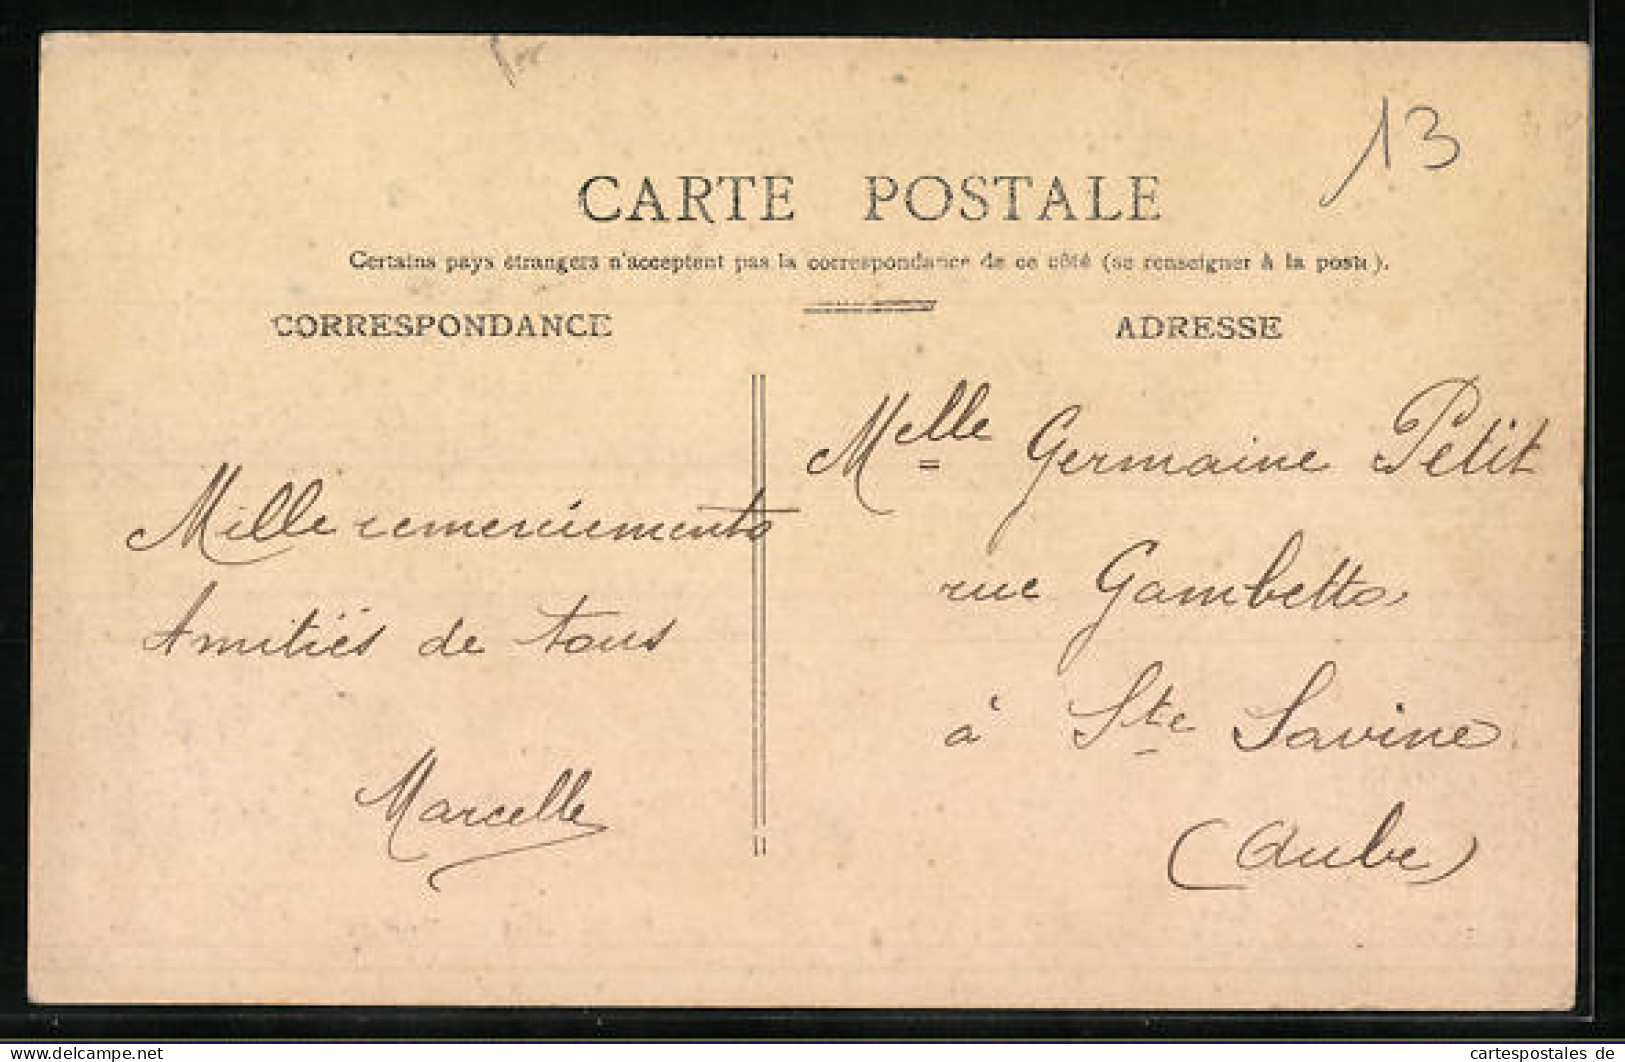 13
CARTE POSTALE
Certains pays étrangers n'acceptent pas la correspondance de ce côté (se renseigner à la poste).
CORRESPONDANCE
ADRESSE
Mille remerciements
Amitiés de tous
Marcelle
Melle Germaine Petit
rue Gambetta
à Ste Savine
(Aube)
Tous droits réservés delcampe.net
cartespostales de